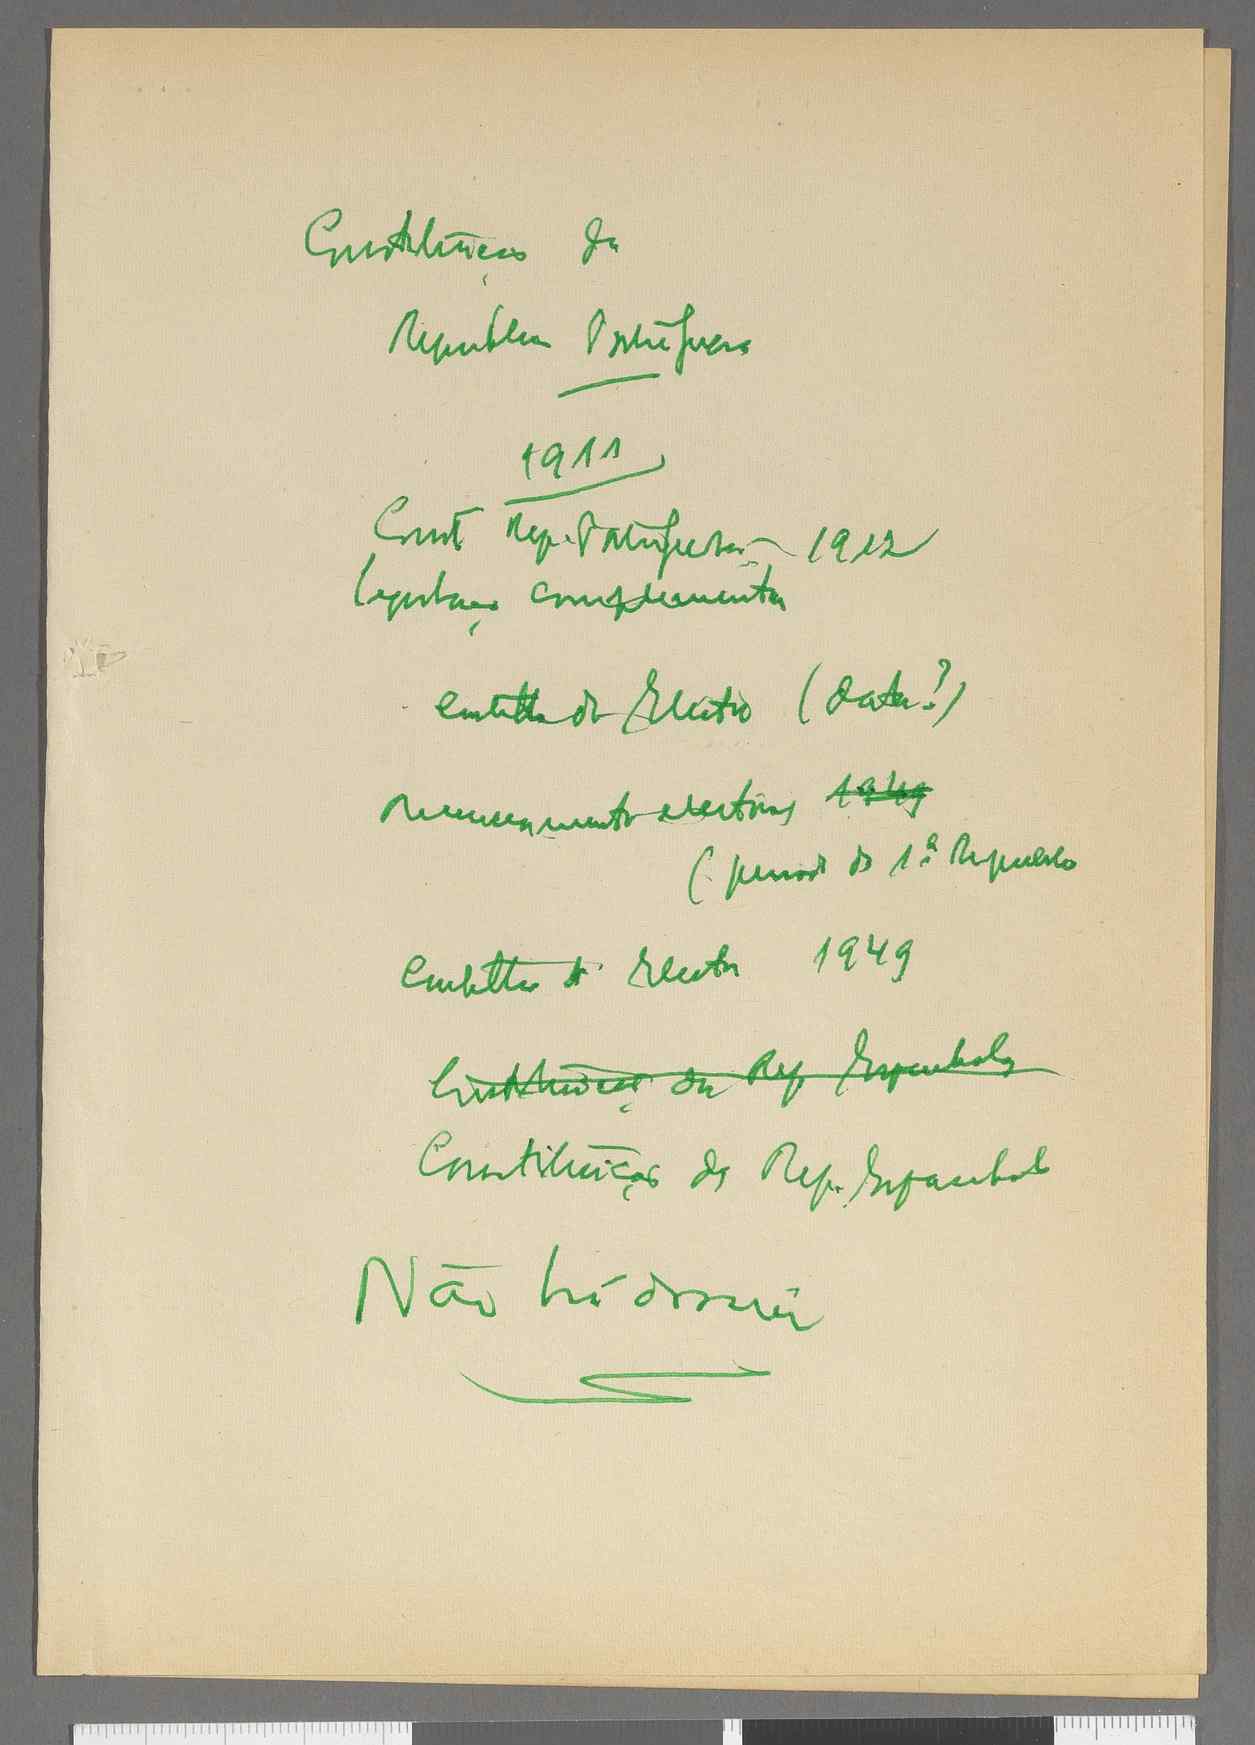 Constituição da
Republica Portuguesa
1911
Const Rep. Portuguesa – 1912
Legislação complementar
do Eleitor (data?)
Recenseamento eleitoral ~~1949~~
(periodo da 1ª Republica
do Eleitor 1949
~~Constituição da Rep Espanhola~~
Constituição da Rep. Espanhola
Não há dossier